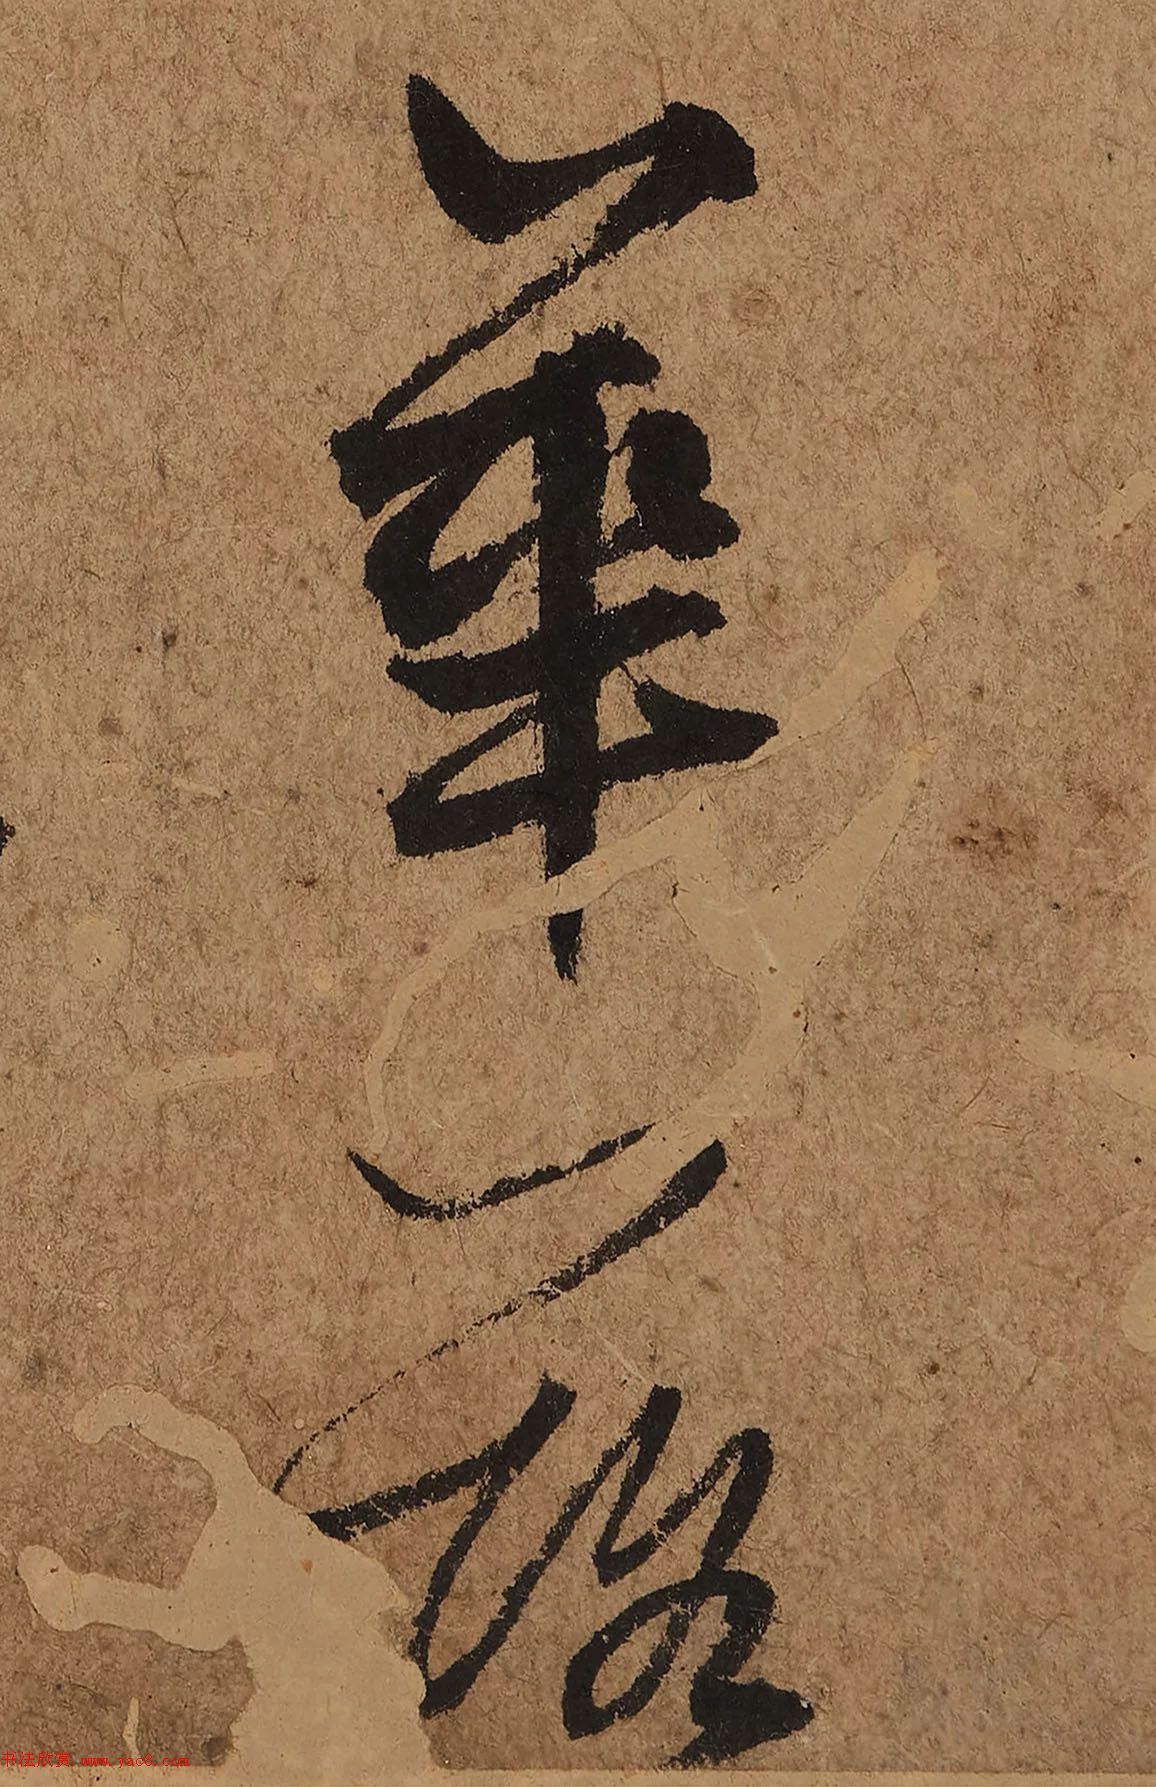 華落
书法欣赏 www.yac8.com